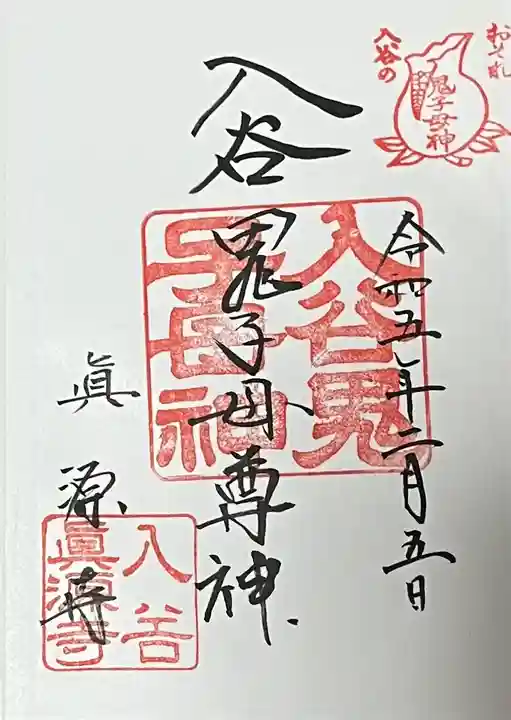 おそれ
入谷の
鬼子母神
令和五年二月五日
入谷
鬼子母尊神
入谷鬼
子母神
眞源寺
入谷
眞源寺